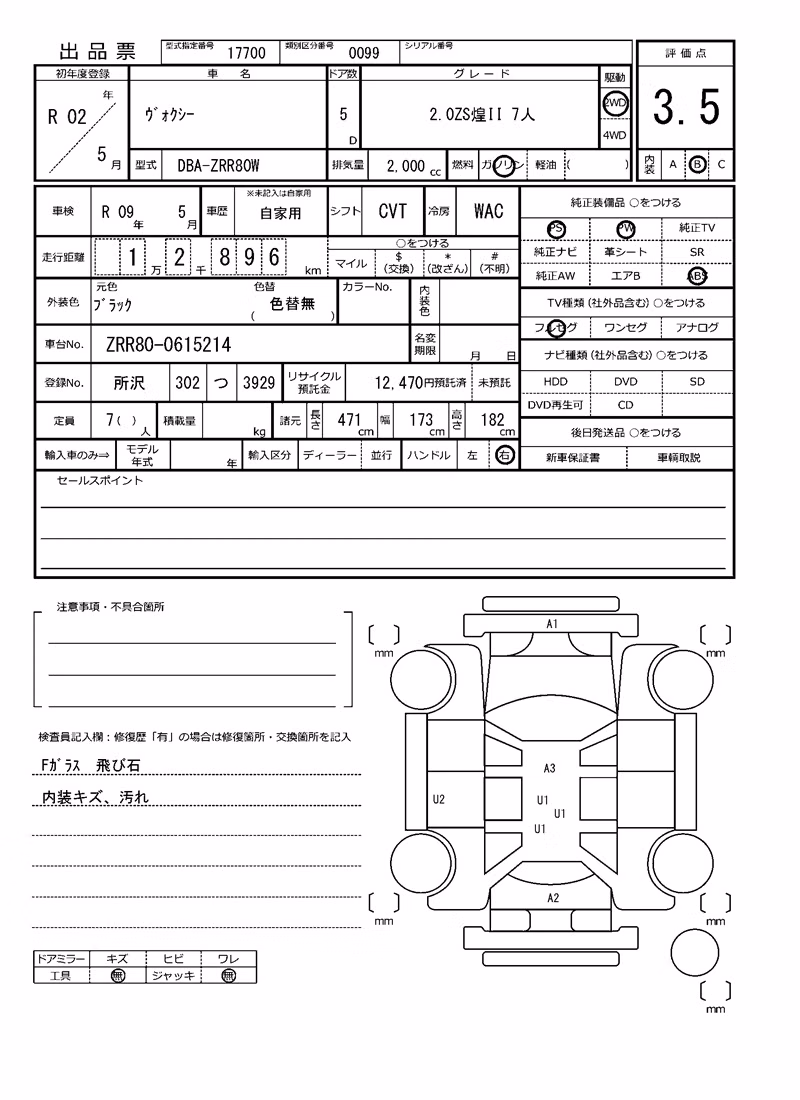 出品票 型式指定番号 17700 類別区分番号 0099 シリアル番号
評価点
3.5
内装 A B C
初年度登録 車名 ドア数 グレード 駆動
R 02 年 5 月 ヴォクシー 5 D 2.0ZS煌II 7人 2WD
4WD
型式 DBA-ZRR80W 排気量 2,000 cc 燃料 ガソリン 軽油 ( )
車検 R 09 年 5 月 車歴 ※未記入は自家用 自家用 シフト CVT 冷房 WAC
走行距離 1 万 2 千 8 9 6 km
○をつける
マイル $ (交換) * (改ざん) # (不明)
外装色 元色 ブラック 色替 ( 色替無 ) カラーNo. 内装色
車台No. ZRR80-0615214 名変期限 月 日
登録No. 所沢 302 つ 3929 リサイクル預託金 12,470円預託済 未預託
定員 7( ) 人 積載量 kg 諸元 長さ 471 cm 幅 173 cm 高さ 182 cm
輸入車のみ⇒ モデル年式 年 輸入区分 ディーラー 並行 ハンドル 左 右
純正装備品 ○をつける
PS PW 純正TV
純正ナビ 革シート SR
純正AW エアB ABS
TV種類(社外品含む)○をつける
フルセグ ワンセグ アナログ
ナビ種類(社外品含む)○をつける
HDD DVD SD
DVD再生可 CD
後日発送品 ○をつける
新車保証書 車輌取説
セールスポイント
注意事項・不具合箇所
検査員記入欄：修復歴「有」の場合は修復箇所・交換箇所を記入
Fガラス 飛び石
内装キズ、汚れ
ドアミラー キズ ヒビ ワレ
工具 無 ジャッキ 無
A1
mm mm
A3
U2 U1
U1
U1
A2
mm mm
mm